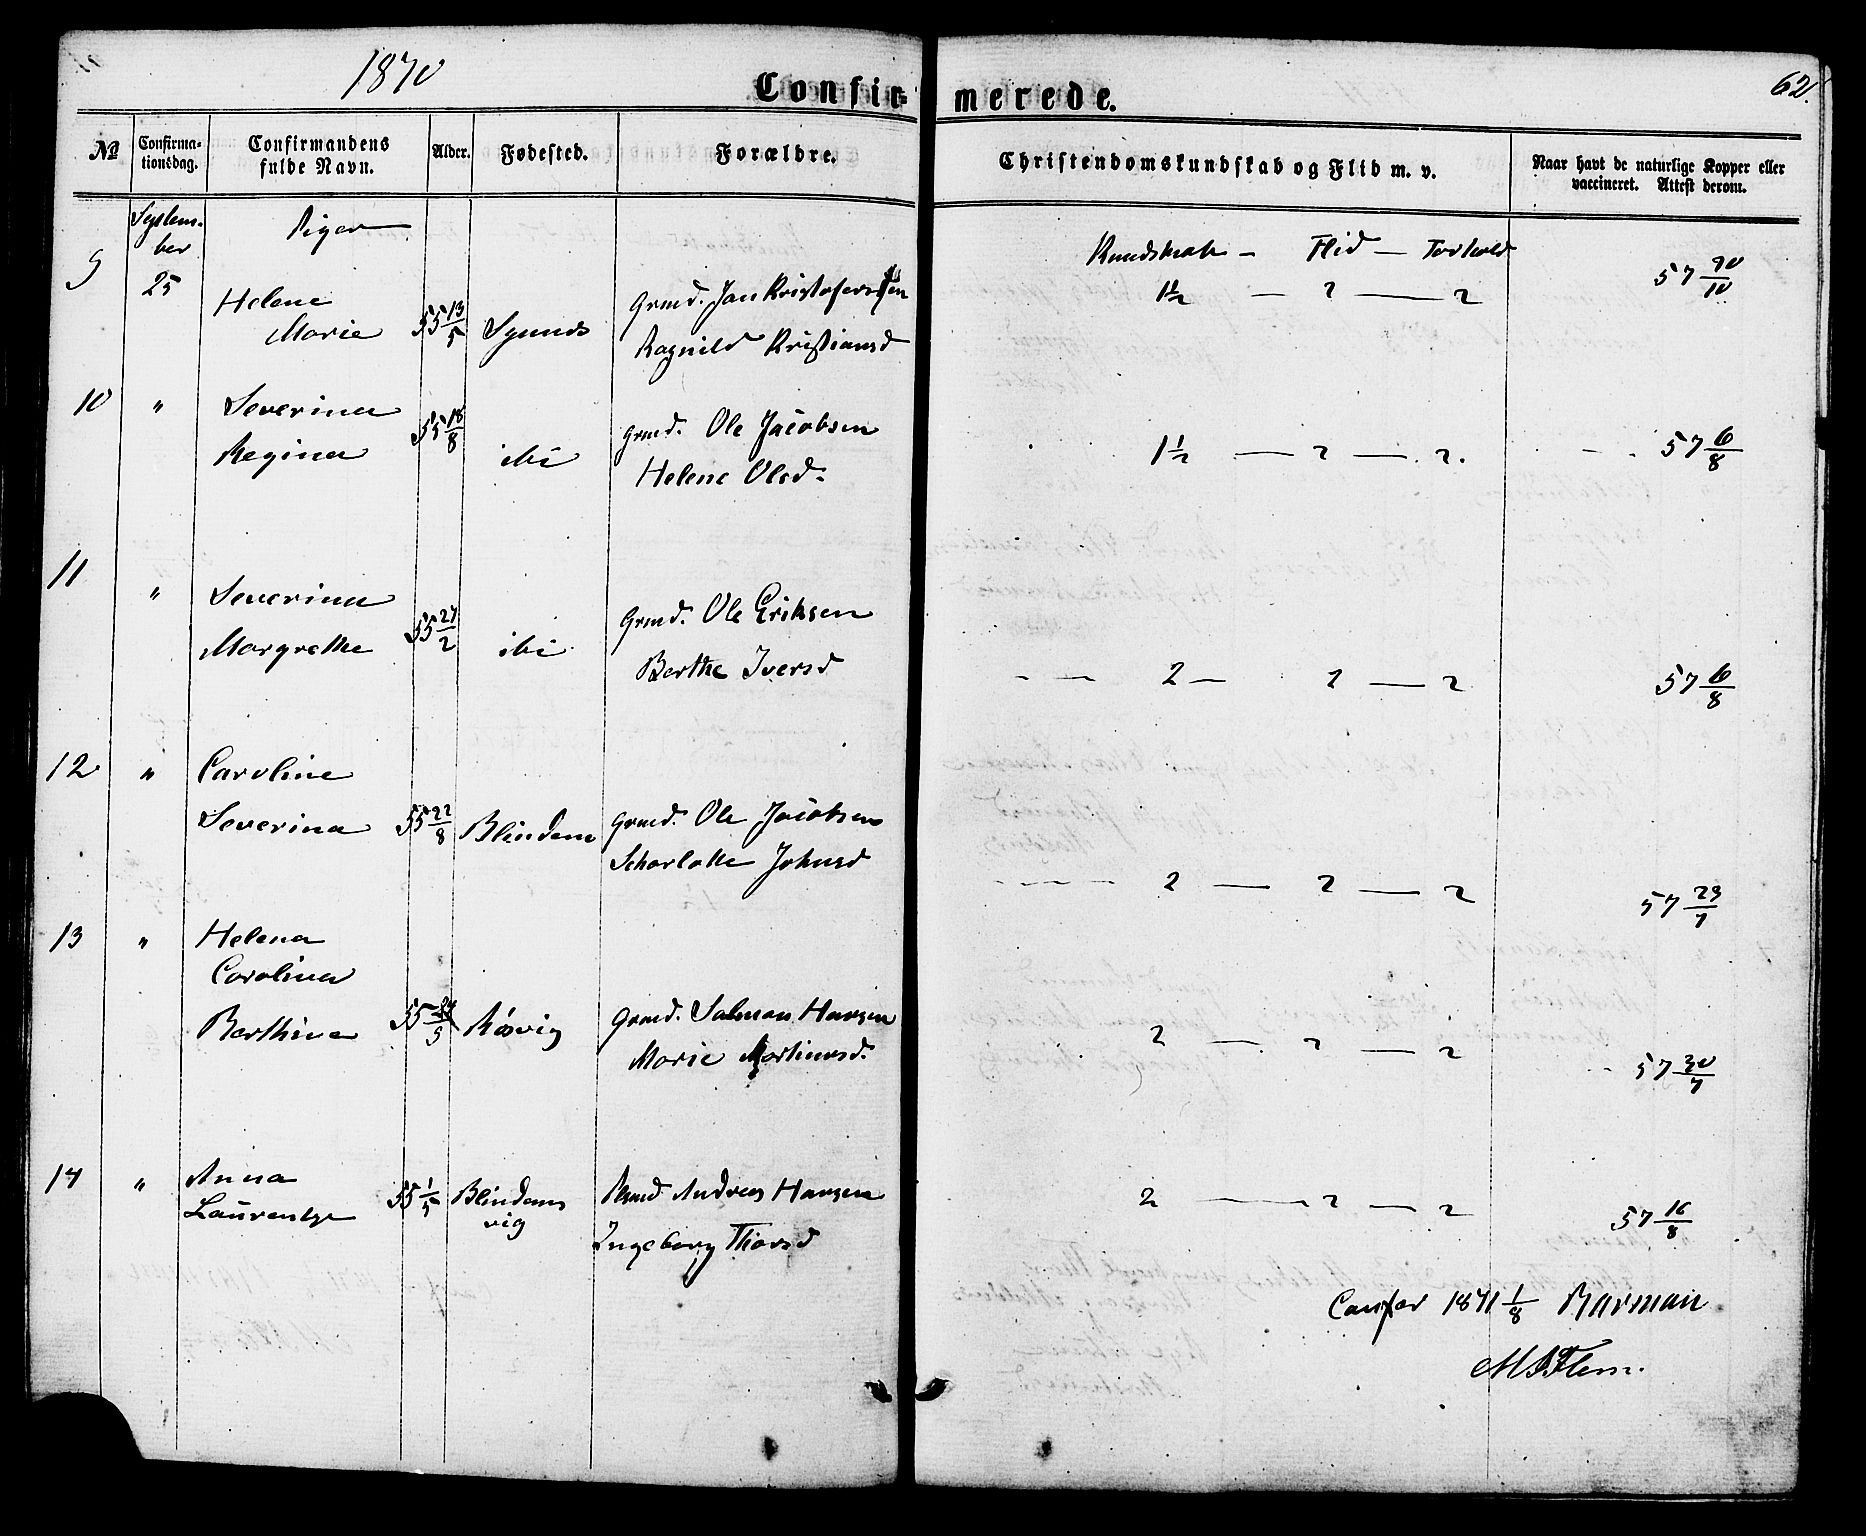 1870
62.
Confir- merede.
№
Confirma-
tionsdag.
Confirmandens
fulde Navn.
Alder.
Fødested.
Forældre.
Christendomskundskab og Flid m. v.
Naar havt de naturlige Kopper eller
vaccineret. Attest derom.
Septem-
ber
25
Piger
Kundskab - Flid - Forhold
9 Helene
Marie 55 13/5 grmd. Jan Kristofersen
Ragnild Kristiansd
1½ - 2 - 2 57 30/10
10 " Severina
Regina 55 18/8 ibi grmd. Ole Jacobsen
Helene Olsd.
1½ - 2 - 2. 57 6/8
11 " Severina
Margrethe 55 27/2 ibi grmd. Ole Eriksen
Berthe Iversd
2 - 2 - 2 57 6/8
12 " Caroline
Severina 55 22/8 grmd. Ole Jacobsen
Scharlotte Johnsd
2 - 2 - 2 57 29/7
13 " Helena
Carolina
Berthina Røsvig grmd. Salmon Hansen
Marie Martinusd.
2 - 2 - 2 57 30/7
14 " Anna
55 1/5 Andreas Hansen
Ingeborg Thorsd
2 - 2 - 2 57 16/8
1871 1/8